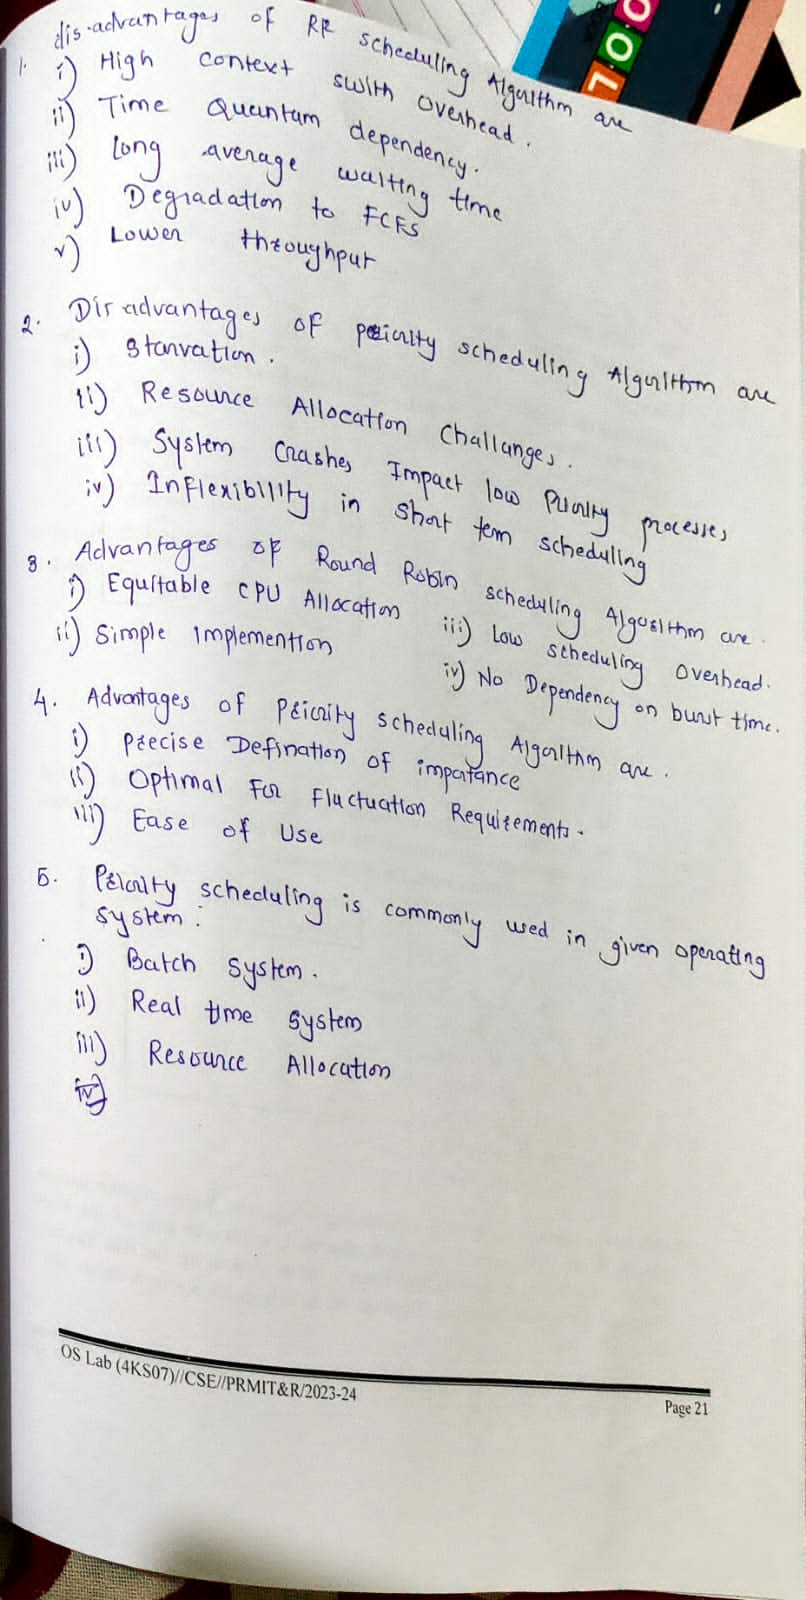 700
1. dis-advantages of RR scheduling Algorithm are
i) High context swith overhead.
ii) Time Quantum dependency.
iii) Long average waiting time
iv) Degradation to FCFS
v) Lower throughput
2. Disadvantages of priority scheduling Algorithm are
i) Starvation.
ii) Resource Allocation Challanges.
iii) System Crashes Impact low Priority processes
iv) Inflexibility in short tem scheduling
3. Advantages of Round Robin scheduling Algorithm are.
i) Equitable CPU Allocation
ii) Simple Implemention
iii) Low scheduling overhead.
iv) No Dependency on burst time.
4. Advantages of Priority scheduling Algorithm are.
i) Precise Defination of impotance
ii) Optimal For Fluctuation Requirements.
iii) Ease of Use
5. Priority scheduling is commonly used in given operating
system:
i) Batch System.
ii) Real time System
iii) Resource Allocation
iv)
OS Lab (4KS07)//CSE//PRMIT&R/2023-24
Page 21